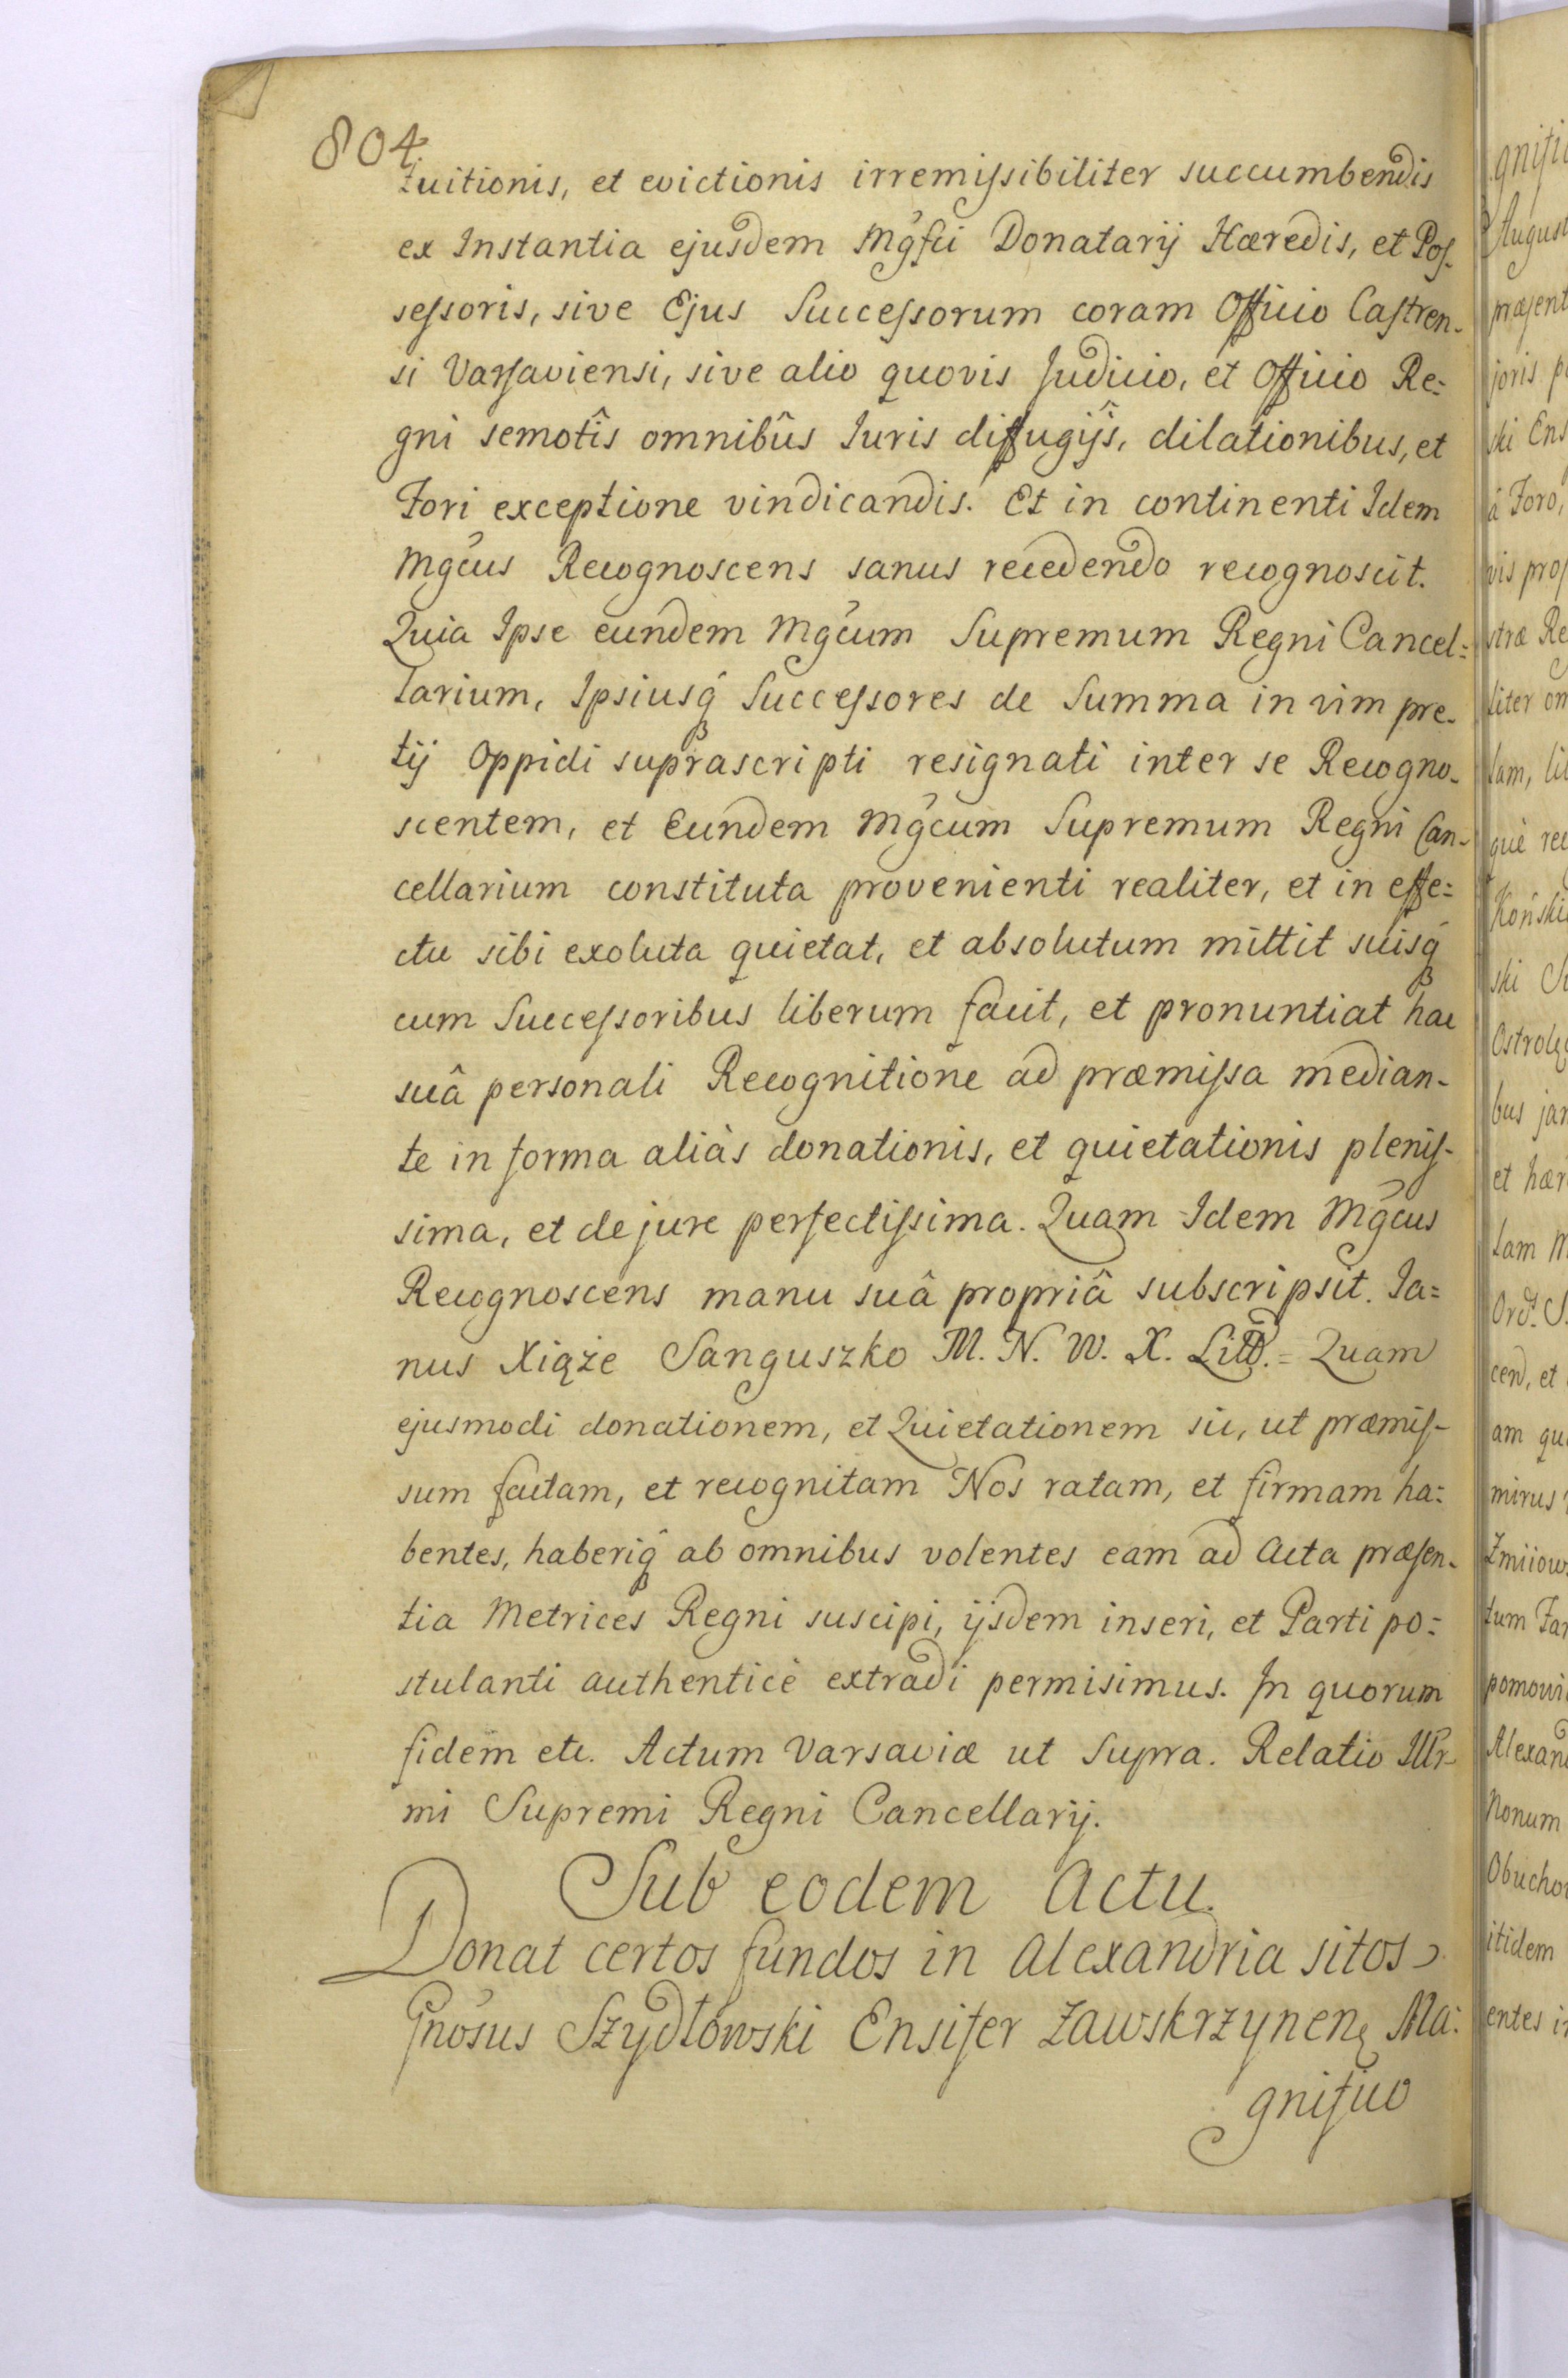 804
tuitionis, et evictionis irremissibiliter succumbendis
ex Instantia ejusdem Mgfci Donatarij Hæredis, et Pos-
sessoris, sive Ejus Successorum coram Officio Castren-
si Varsaviensi, sive alio quovis Judicio, et Officio Re=
gni semotîs omnibûs Iuris diffugijs, dilationibus, et
Fori exceptione vindicandis. Et in continenti Idem
Mgcus Recognoscens sanus recedendo recognoscit.
Quia Ipse eundem Mgcum Supremum Regni Cancel=
larium, Ipsiusq́ Successores de Summa in vim pre-
tij Oppidi suprascripti resignati inter se Recogno-
scentem, et Eundem Mgcum Supremum Regni Can-
cellarium constituta provenienti realiter, et in effe=
ctu sibi exoluta quietat, et absolutum mittit suisq́
cum Successoribus liberum facit, et pronuntiat hac
suâ personali Recognitione ad præmissa median-
te in forma aliàs donationis, et quietationis plenis-
sima, et de jure perfectissima. Quam Idem Mgcus
Recognoscens manu suâ propriâ subscripsit. Ja=
nus Xiąże Sanguszko M. N. W. X. Litt̃. = Quam
ejusmodi donationem, et Quietationem sic, ut præmis-
sum factam, et recognitam Nos ratam, et firmam ha=
bentes, haberiq́ ab omnibus volentes eam ad Acta præsen-
tia Metrices Regni suscipi, ijsdem inseri, et Parti po=
stulanti authenticè extradi permisimus. In quorum
fidem etc. Actum Varsaviæ ut Supra. Relatio Illr-
mi Supremi Regni Cancellarij.
Sub eodem Actu.
Donat certos fundos in Alexandria sitos
Gnosus Szydłowski Ensifer Zawskrzynen̨ Ma=
gnifico